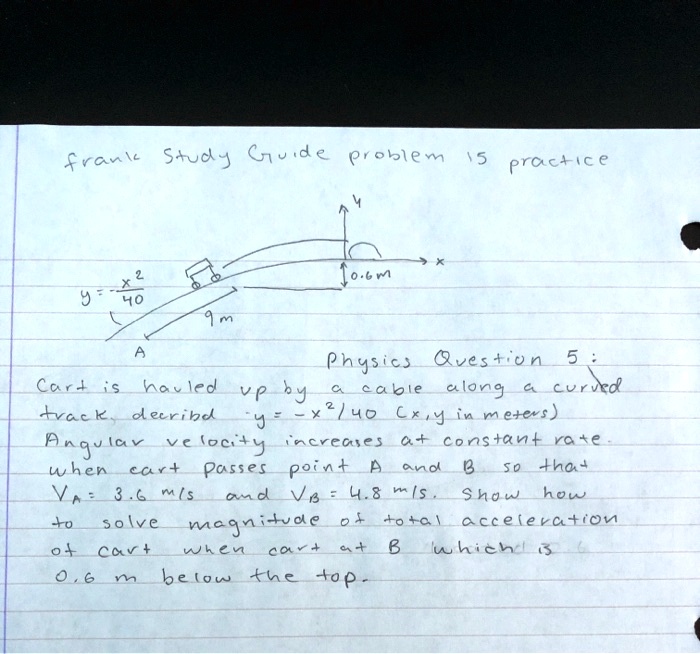 frank Study Guide problem is practice
y
x
y = -x²/40
0.6m
9m
A
Physics Question 5:
Cart is hauled up by a cable along a curved
track, decribd y = -x²/40 (x,y in meters)
Angular velocity increases at constant rate.
when cart passes point A and B so that
VA = 3.6 m/s and VB = 4.8 m/s. Show how
to solve magnitude of total acceleration
of cart when cart at B which is
0.6 m below the top.